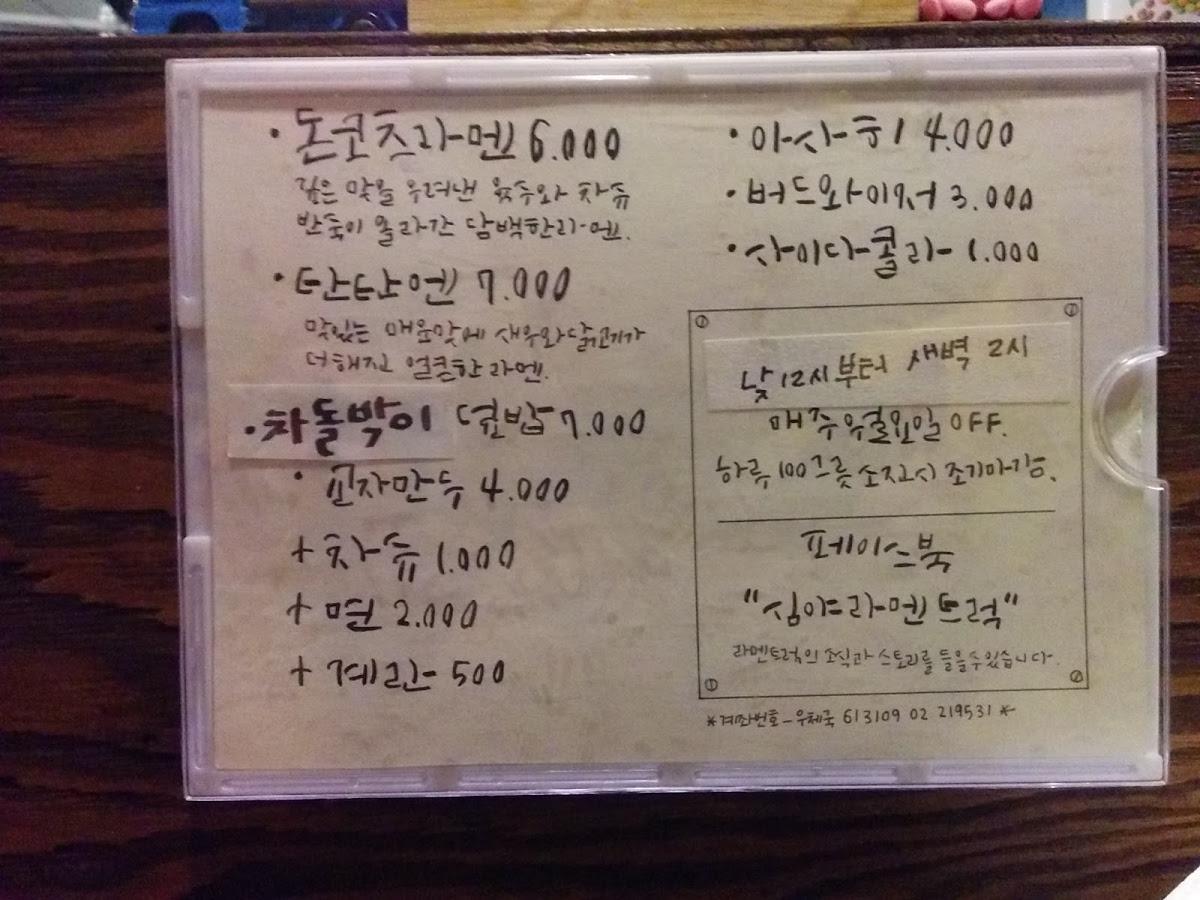 · 돈코츠라-멘 6.000
깊은 맛을 우려낸 육수와 차슈
반숙이 올라간 담백한라-멘.
· 탄탄멘 7.000
맛있는 매운맛에 새우와닭고기가
더해진 얼큰한 라멘.
· 차돌박이 덮밥 7.000
· 교자만두 4.000
+ 차-슈 1.000
+ 면 2.000
+ 계란- 500
· 아사-히 4.000
· 버드와이저 3.000
· 사이다-콜라- 1.000
낮 12시부터 새벽 2시
매주 월요일 OFF.
하루 100그릇 소진시 조기마감.
페이스북
"심야라-멘트럭"
라멘트럭의 소식과 스토리를 들을수있습니다.
*계좌번호-우체국 613109 02 219531 *